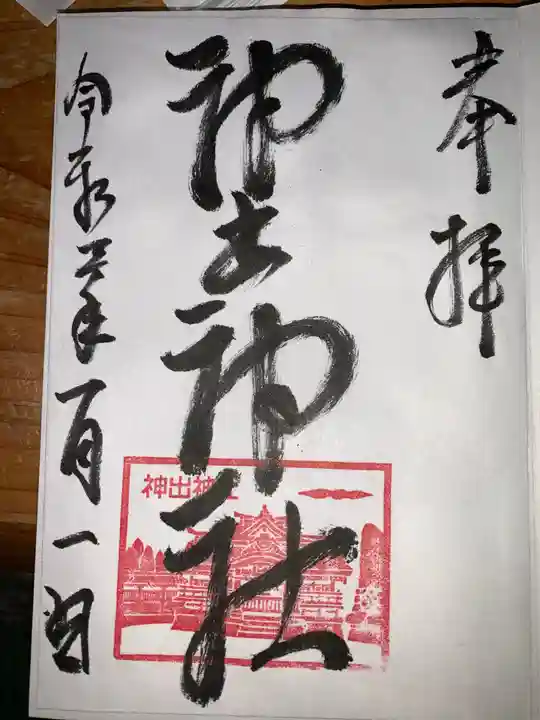 奉拝
神出神社
神出神社
令和三年一月一日